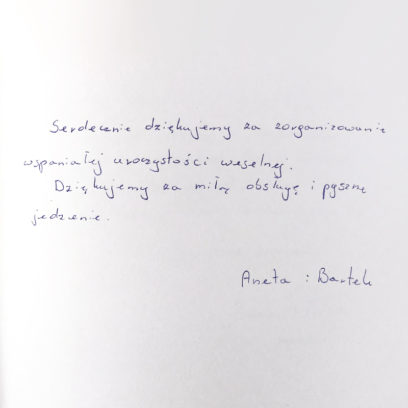 Serdecznie dziękujemy za zorganizowanie
wspaniałej uroczystości weselnej.
Dziękujemy za miłą obsługę i pyszne
jedzenie.
Aneta i Bartek